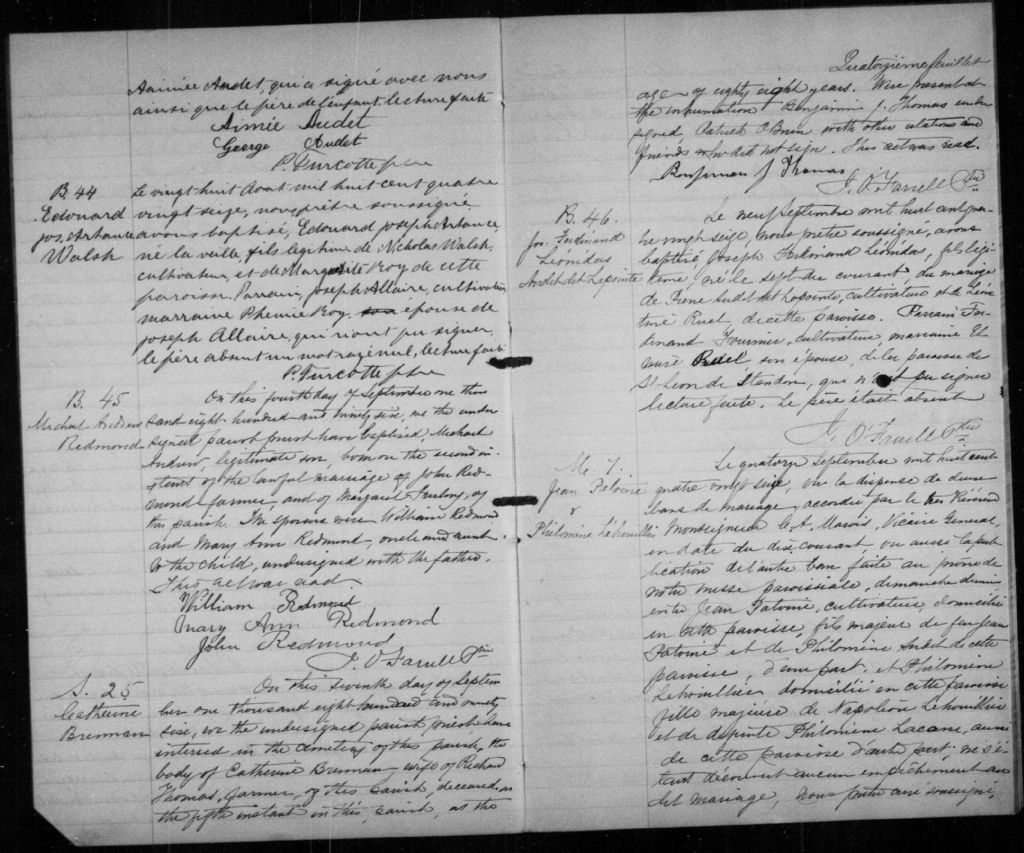 Aimée Audet, qui a signé avec nous
ainsi que le père de l'enfant, lecture faite
Aimée Audet
George Audet
P. Turcotte ptre
B. 44
Edouard
Jos. Artance
Walsh
Le vingt huit Aout mil huit cent quatre
vingt seize, nous prêtre soussigné
avons baptisé, Edouard Joseph Artance,
né la veille, fils légitime de Nicholas Walsh,
cultivateur, et de Marguerite Roy de cette
paroisse. Parrain, Joseph Allaire, cultivateur
marraine Phemie Roy, épouse de
Joseph Allaire, qui n'ont pu signer
le père absent un mot rayé nul, lecture faite
P. Turcotte ptre
B. 45
Michael Andrew
Redmond
On this fourth day of September one thou
sand eight hundred and ninety six, we the under
signed parish priest have baptised Michael
Andrew, legitimate son, born on the second in
stant of the lawful marriage of John Red-
mond farmer, and of Margaret of
this parish. The sponsors were William Redmond
and Mary Ann Redmond, uncle and aunt
to the child, undersigned with the father.
This act was read
William Redmond
Mary Ann Redmond
John Redmond
J. O'Farrell Ptre
S. 25
Catherine
Brennan
On this seventh day of Septem
ber one thousand eight hundred and ninety
six, we the undersigned parish priest have
interred in the cemetery of this parish, the
body of Catherine Brennan wife of Richard
Thomas, farmer, of this parish, deceased on
the fifth instant in this parish, at the
Quatorzième feuillet
age of eighty eight years. Were present at
the inhumation Benjamin J. Thomas under
signed, Patrick O'Brien with other relations and
friends who did not sign. This act was read.
Benjamin J Thomas
J. O'Farrell Ptre
B. 46.
Jos. Ferdinand
Leonidas
Audet dit Lapointe
Le neuf Septembre mil huit cent qua-
tre vingt seize, nous prêtre soussigné, avons
baptisé Joseph Ferdinand Léonidas, fils légi
time, né le sept du courant, du mariage
de Irené Audet dit Lapointe, cultivateur et de Léon
tine Ruel, de cette paroisse. Parrain Fer-
dinand Fournier, cultivateur, marraine El
mire Ruel son épouse, de la paroisse de
St Leon de Standon, qui n'ont pu signer
lecture faite. Le père était absent
J. O'Farrell Ptre
M. 7.
Jean Patoine
&
Philomène Lehouillier
Le quatorze Septembre mil huit cent
quatre vingt seize, vu la dispense de deux
bans de mariage accordée par le très Révérend
Monseigneur C. A. Marois, Vicaire General,
en date du dix courant, vu aussi la publi
cation de l'autre ban faite au prône de
notre messe paroissiale, dimanche dernier,
entre Jean Patoine, cultivateur, domicilié
en cette paroisse, fils majeur de feu Jean
Patoine et de Philomène Audet de cette
paroisse, d'une part, et Philomène
Lehouillier domiciliée en cette paroisse
fille majeure de Napoléon Lehouillier
et de défunte Philomène Lacasse, aussi
de cette paroisse d'autre part, ne s'é
tant découvert aucun empêchement au
dit mariage, nous prêtre curé soussigné,